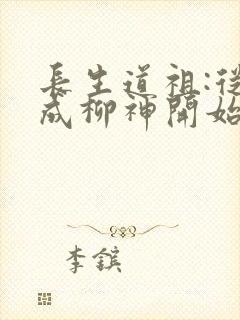 長生道祖:從
成柳神開始
李鑌